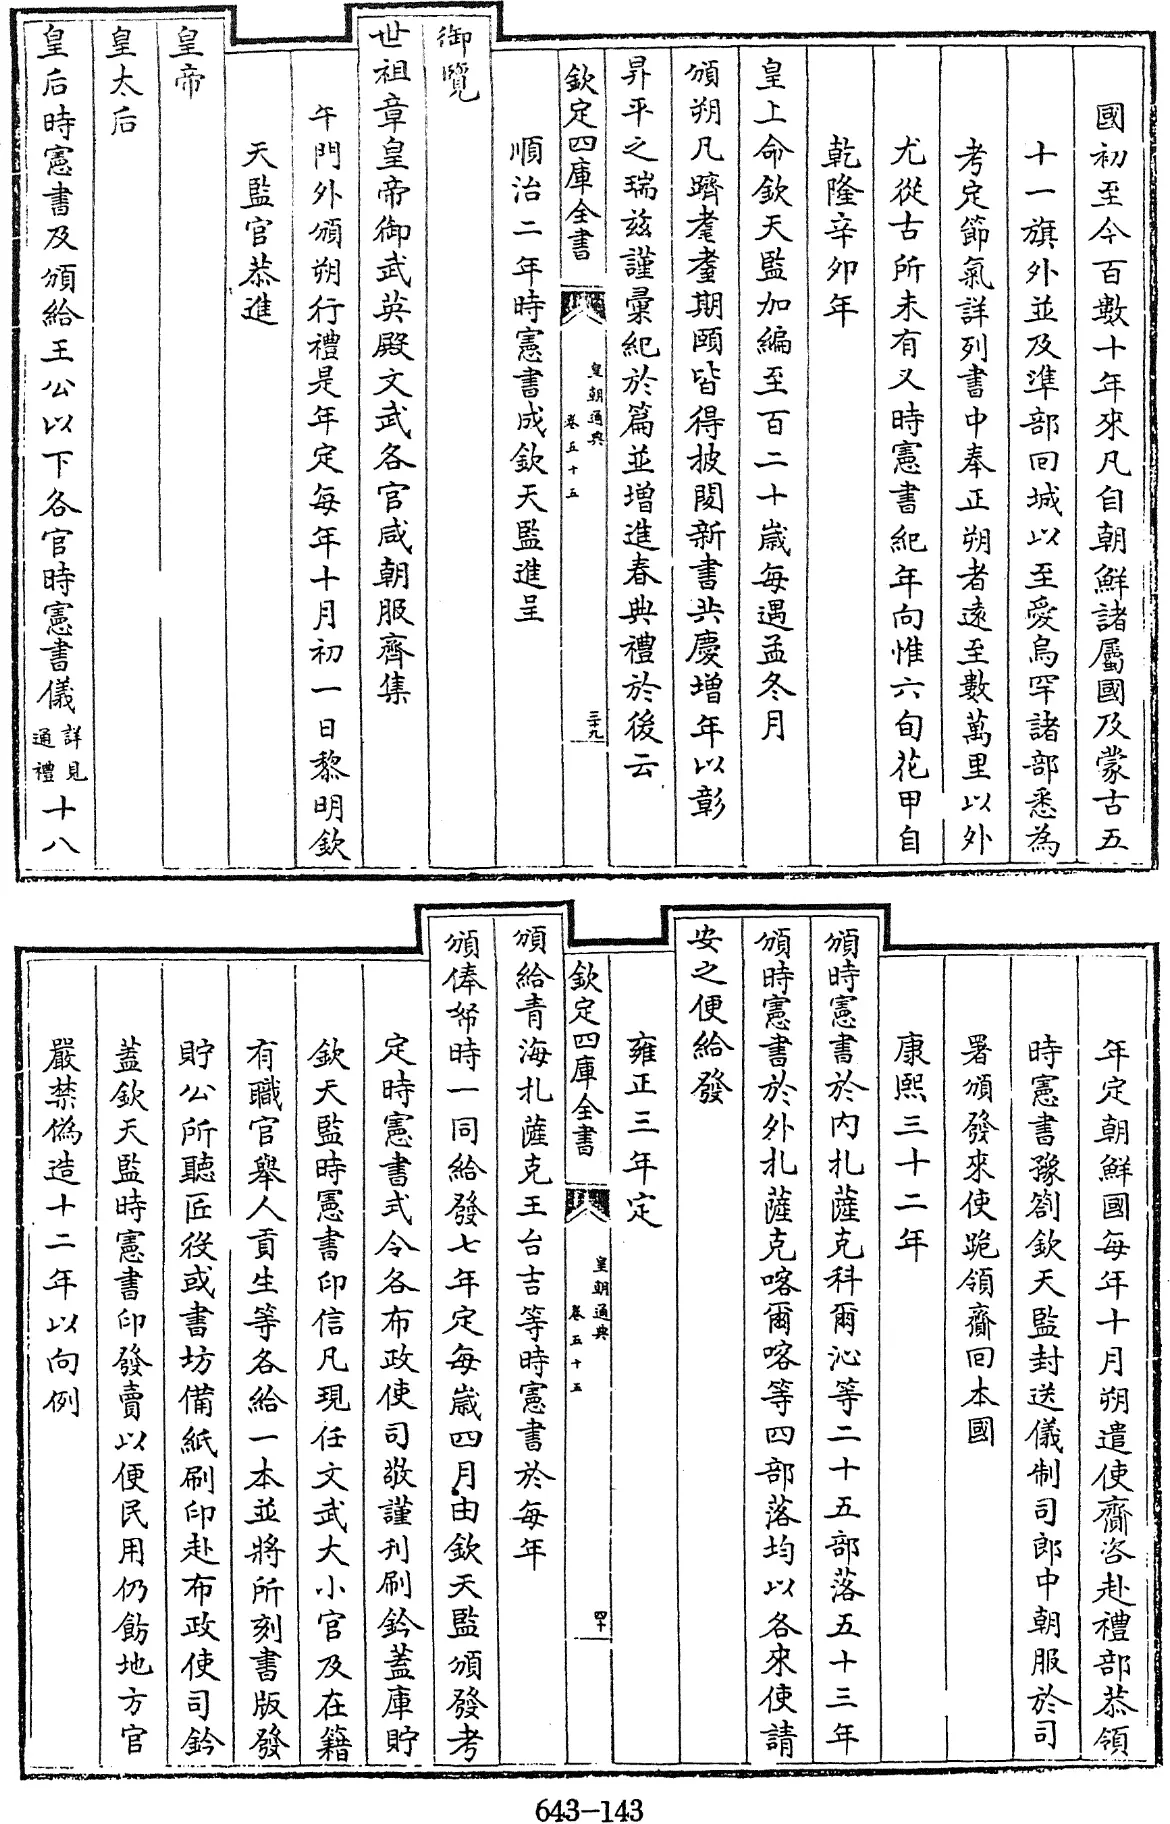 國初至今百數十年來凡自朝鮮諸屬國及蒙古五
十一旗外並及準部回城以至愛烏罕諸部悉為
考定節氣詳列書中奉正朔者遠至數萬里以外
尤從古所未有又時憲書紀年向惟六旬花甲自
乾隆辛卯年
皇上命欽天監加編至百二十歲每遇孟冬月
頒朔凡躋耄耋期頤皆得披閱新書共慶增年以彰
昇平之瑞茲謹彙紀於篇並增進春典禮於後云
欽定四庫全書
皇朝通典
卷五十五
三十九
順治二年時憲書成欽天監進呈
御覽
世祖章皇帝御武英殿文武各官咸朝服齊集
午門外頒朔行禮是年定每年十月初一日黎明欽
天監官恭進
皇帝
皇太后
皇后時憲書及頒給王公以下各官時憲書儀詳見通禮十八
年定朝鮮國每年十月朔遣使齎咨赴禮部恭領
時憲書豫劄欽天監封送儀制司郎中朝服於司
署頒發來使跪領齎回本國
康熙三十二年
頒時憲書於內扎薩克科爾沁等二十五部落五十三年
頒時憲書於外扎薩克喀爾喀等四部落均以各來使請
安之便給發
雍正三年定
欽定四庫全書
皇朝通典
卷五十五
四十
頒給青海扎薩克王台吉等時憲書於每年
頒俸幣時一同給發七年定每歲四月由欽天監頒發考
定時憲書式令各布政使司敬謹刊刷鈐蓋庫貯
欽天監時憲書印信凡現任文武大小官及在籍
有職官舉人貢生等各給一本並將所刻書版發
貯公所聽匠役或書坊備紙刷印赴布政使司鈐
蓋欽天監時憲書印發賣以便民用仍飭地方官
嚴禁偽造十二年以向例
643-143